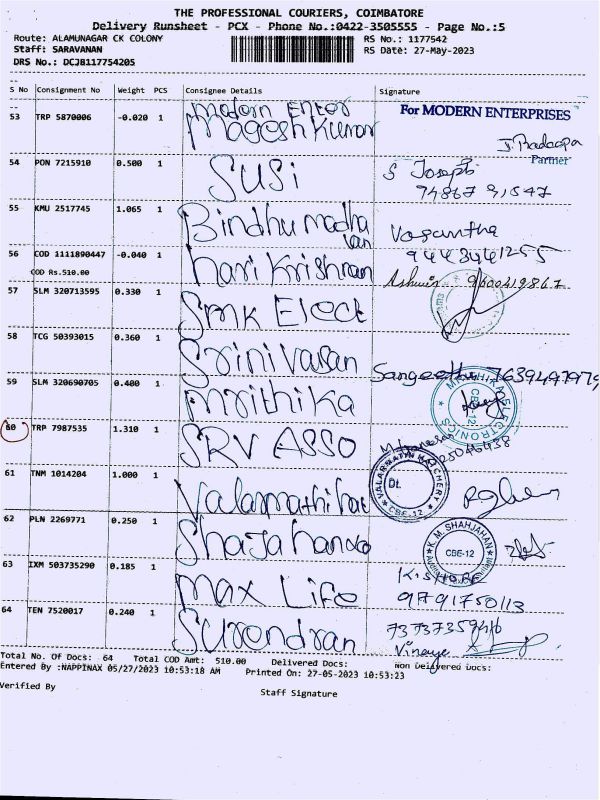 THE PROFESSIONAL COURIERS, COIMBATORE
Delivery Runsheet - PCX - Phone No.:0422-3505555 - Page No.:5
Route: ALAMUNAGAR CK COLONY RS No.: 1177542
Staff: SARAVANAN RS Date: 27-May-2023
DRS No.: DCJB117754205
S No Consignment No Weight PCS Consignee Details Signature
53 TRP 5870006 -0.020 1 Modern Enter For MODERN ENTERPRISES
Mageshkumar
Partner
54 PON 7215910 0.500 1 SUSI S Joseph
74867 91547
55 KMU 2517745 1.065 1 Bindhu madha van Vasantha
9443441255
56 COD 1111890447 -0.040 1 hari Krishnan Ashwin 9600419867
COD Rs.510.00
57 SLM 320713595 0.330 1 SMK Elect
58 TCG 50393015 0.360 1 Srinivasan Sangeetha
59 SLM 320690705 0.400 1 Mrithika MRITHIKA ELECTRONICS CBE-12
60 TRP 7987535 1.310 1 SRV ASSO
61 TNM 1014204 1.000 1 Valarmathi hat VALARMATHI HATCHERY CBE-12 Dt.
62 PLN 2269771 0.250 1 Shajahan K. M. SHAJAHAN CBE-12
63 IXM 503735290 0.185 1 Max Life Kishore
9791750113
64 TEN 7520017 0.240 1 Surendran
Vinaye
Total No. Of Docs: 64 Total COD Amt: 510.00 Delivered Docs: Non Delivered Docs:
Entered By :NAPPINAX 05/27/2023 10:53:18 AM Printed On: 27-05-2023 10:53:23
Verified By Staff Signature